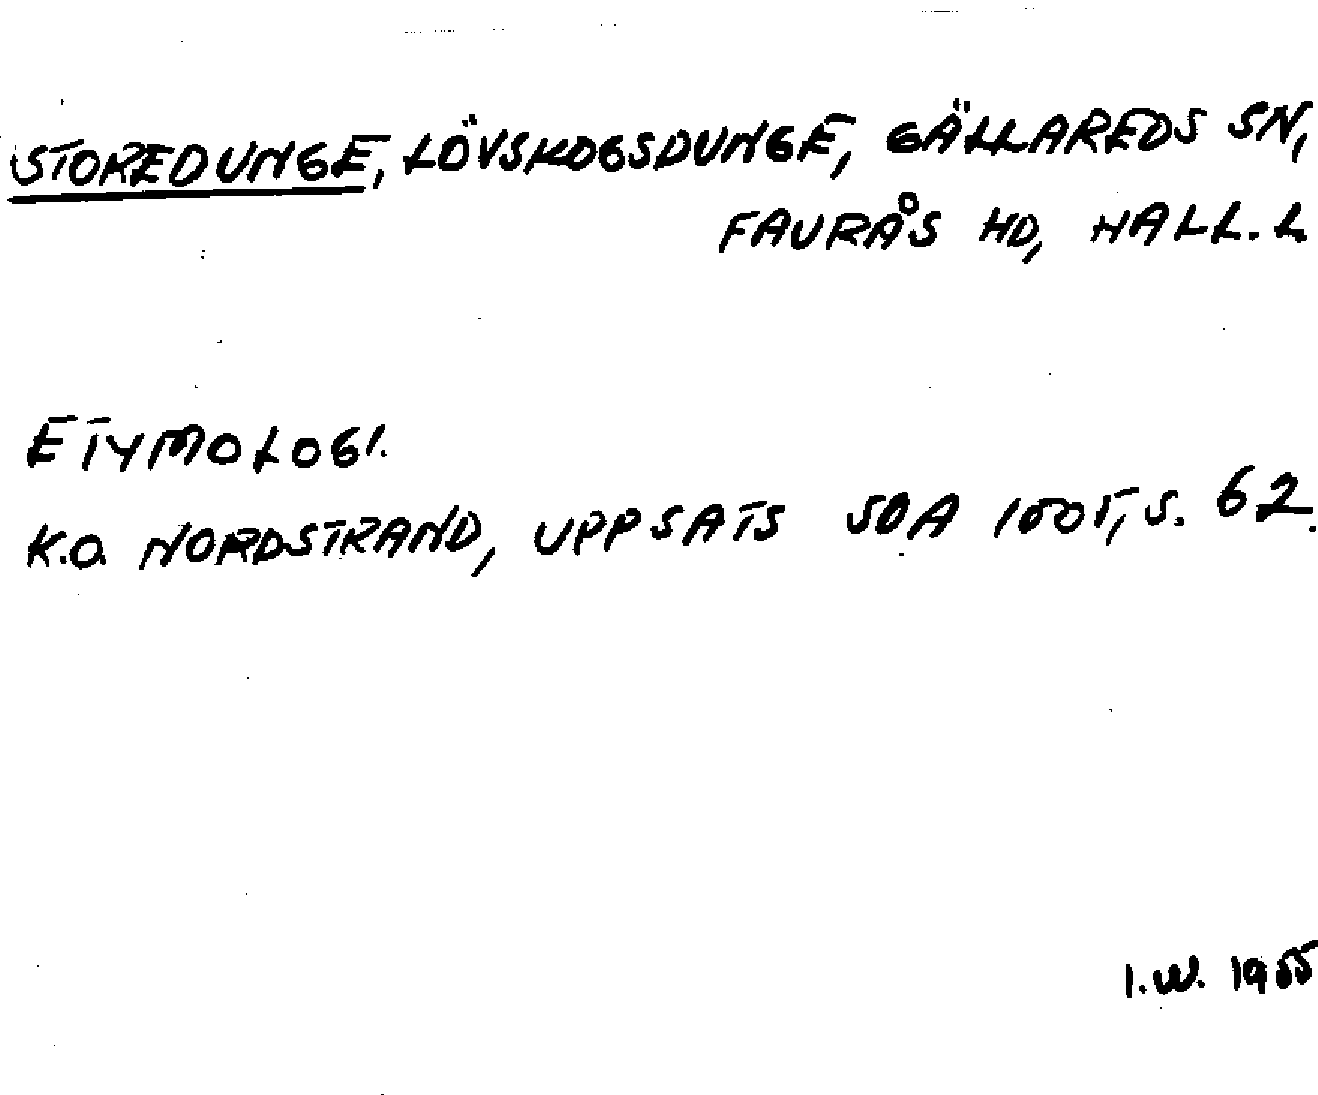 STOREDUNGE, LÖVSKOGSDUNGE, GÄLLAREDS SN,
FAURÅS HD, HALL. L
ETYMOLOGI.
K.O. NORDSTRAND, UPPSATS SOA S. 62.
I.W. 1955